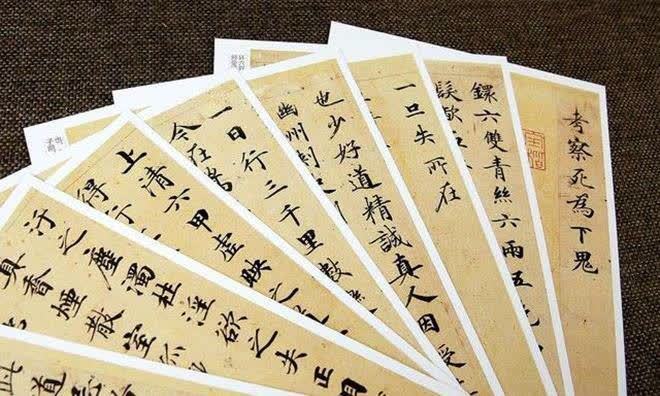 考察死為下鬼
六雙青絲六兩五
髮歃
一旦失所在
也少好道精誠真人因受
幽州刺
一日行三千里數
今在
上清六甲虛映之
得行
汙之塵濁杜淫欲之失正
香煙散室
此道